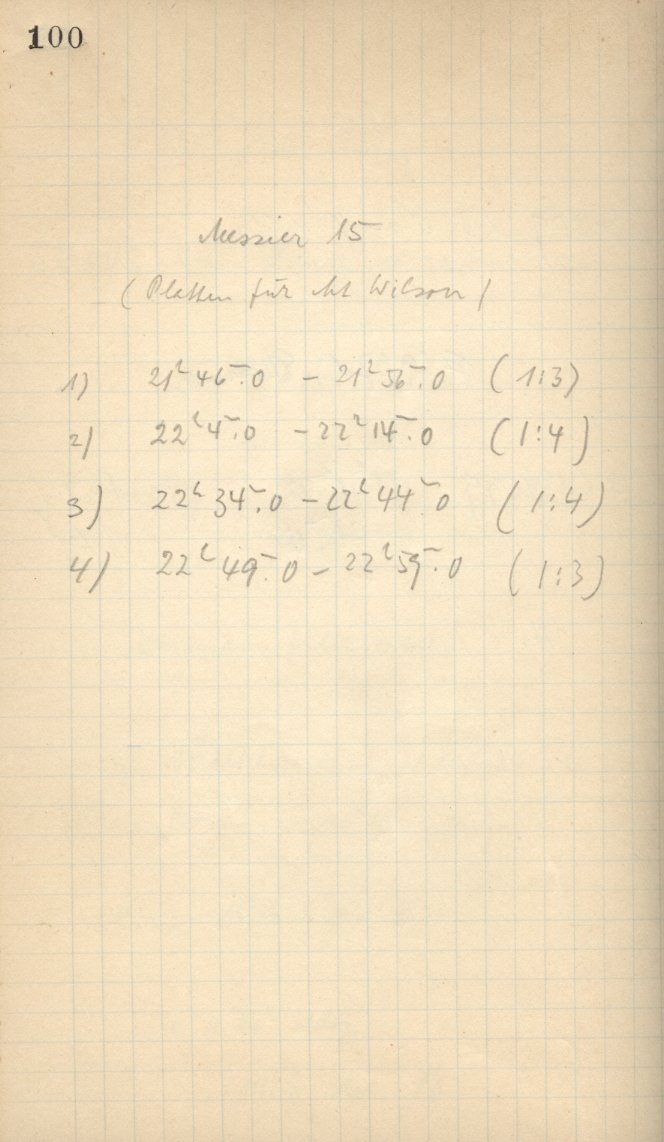 100
Messier 15
(Platten für Mt Wilson)
1) 21ʰ 46ᵐ.0 – 21ʰ 56ᵐ.0 (1:3)
2) 22ʰ 4ᵐ.0 – 22ʰ 14ᵐ.0 (1:4)
3) 22ʰ 34ᵐ.0 – 22ʰ 44ᵐ.0 (1:4)
4) 22ʰ 49ᵐ.0 – 22ʰ 59ᵐ.0 (1:3)